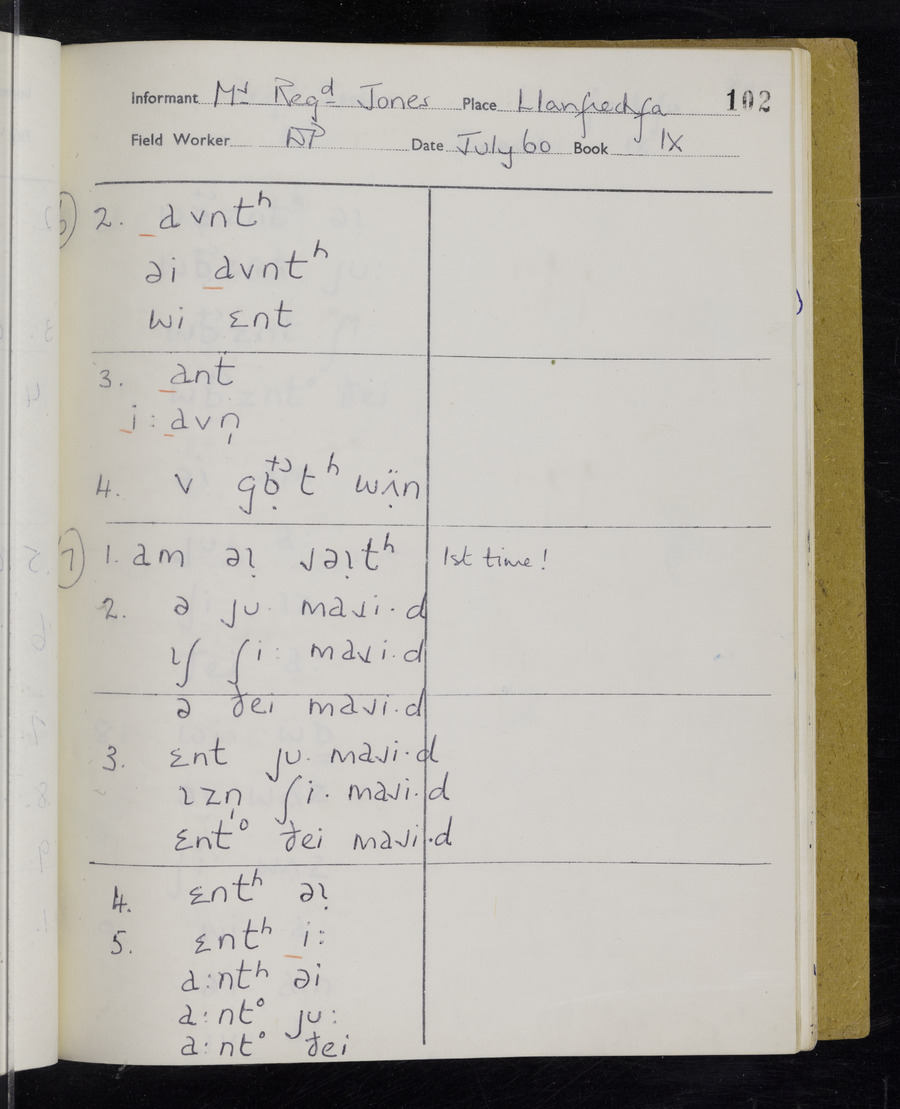 Informant Mr Regd Jones Place Llanfrechfa 102
Field Worker DP Date July 60 Book IX
6) 2. avntʰ
əi avntʰ
wi ɛnt
3. ant
i: avn̩
4. v tʰ wïn
7) 1. am əı ɹəıtʰ 1st time!
2. ə ju· maɹi·d
ɪʃ ʃi: maɹi·d
ə ðei maɹi·d
3. ɛnt ju· maɹi·d
ɪzn̩ ʃi· maɹi·d
ɛnt° ðei maɹi·d
4. ɛntʰ əı
5. ɛntʰ i:
a:ntʰ əi
a:nt° ju:
a:nt° ðei